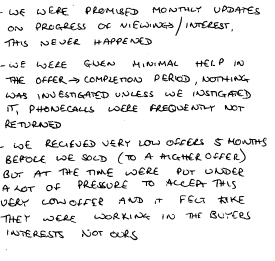 - WE WERE PROMISED MONTHLY UPDATES
ON PROGRESS OF VIEWINGS/INTEREST,
THIS NEVER HAPPENED
- WE WERE GIVEN MINIMAL HELP IN
THE OFFER → COMPLETION PERIOD, NOTHING
WAS INVESTIGATED UNLESS WE INSTIGATED
IT, PHONECALLS WERE FREQUENTLY NOT
RETURNED
- WE RECIEVED VERY LOW OFFERS 5 MONTHS
BEFORE WE SOLD (TO A HIGHER OFFER)
BUT AT THE TIME WERE PUT UNDER
A LOT OF PRESSURE TO ACCEPT THIS
VERY LOW OFFER AND IT FELT LIKE
THEY WERE WORKING IN THE BUYERS
INTERESTS NOT OURS